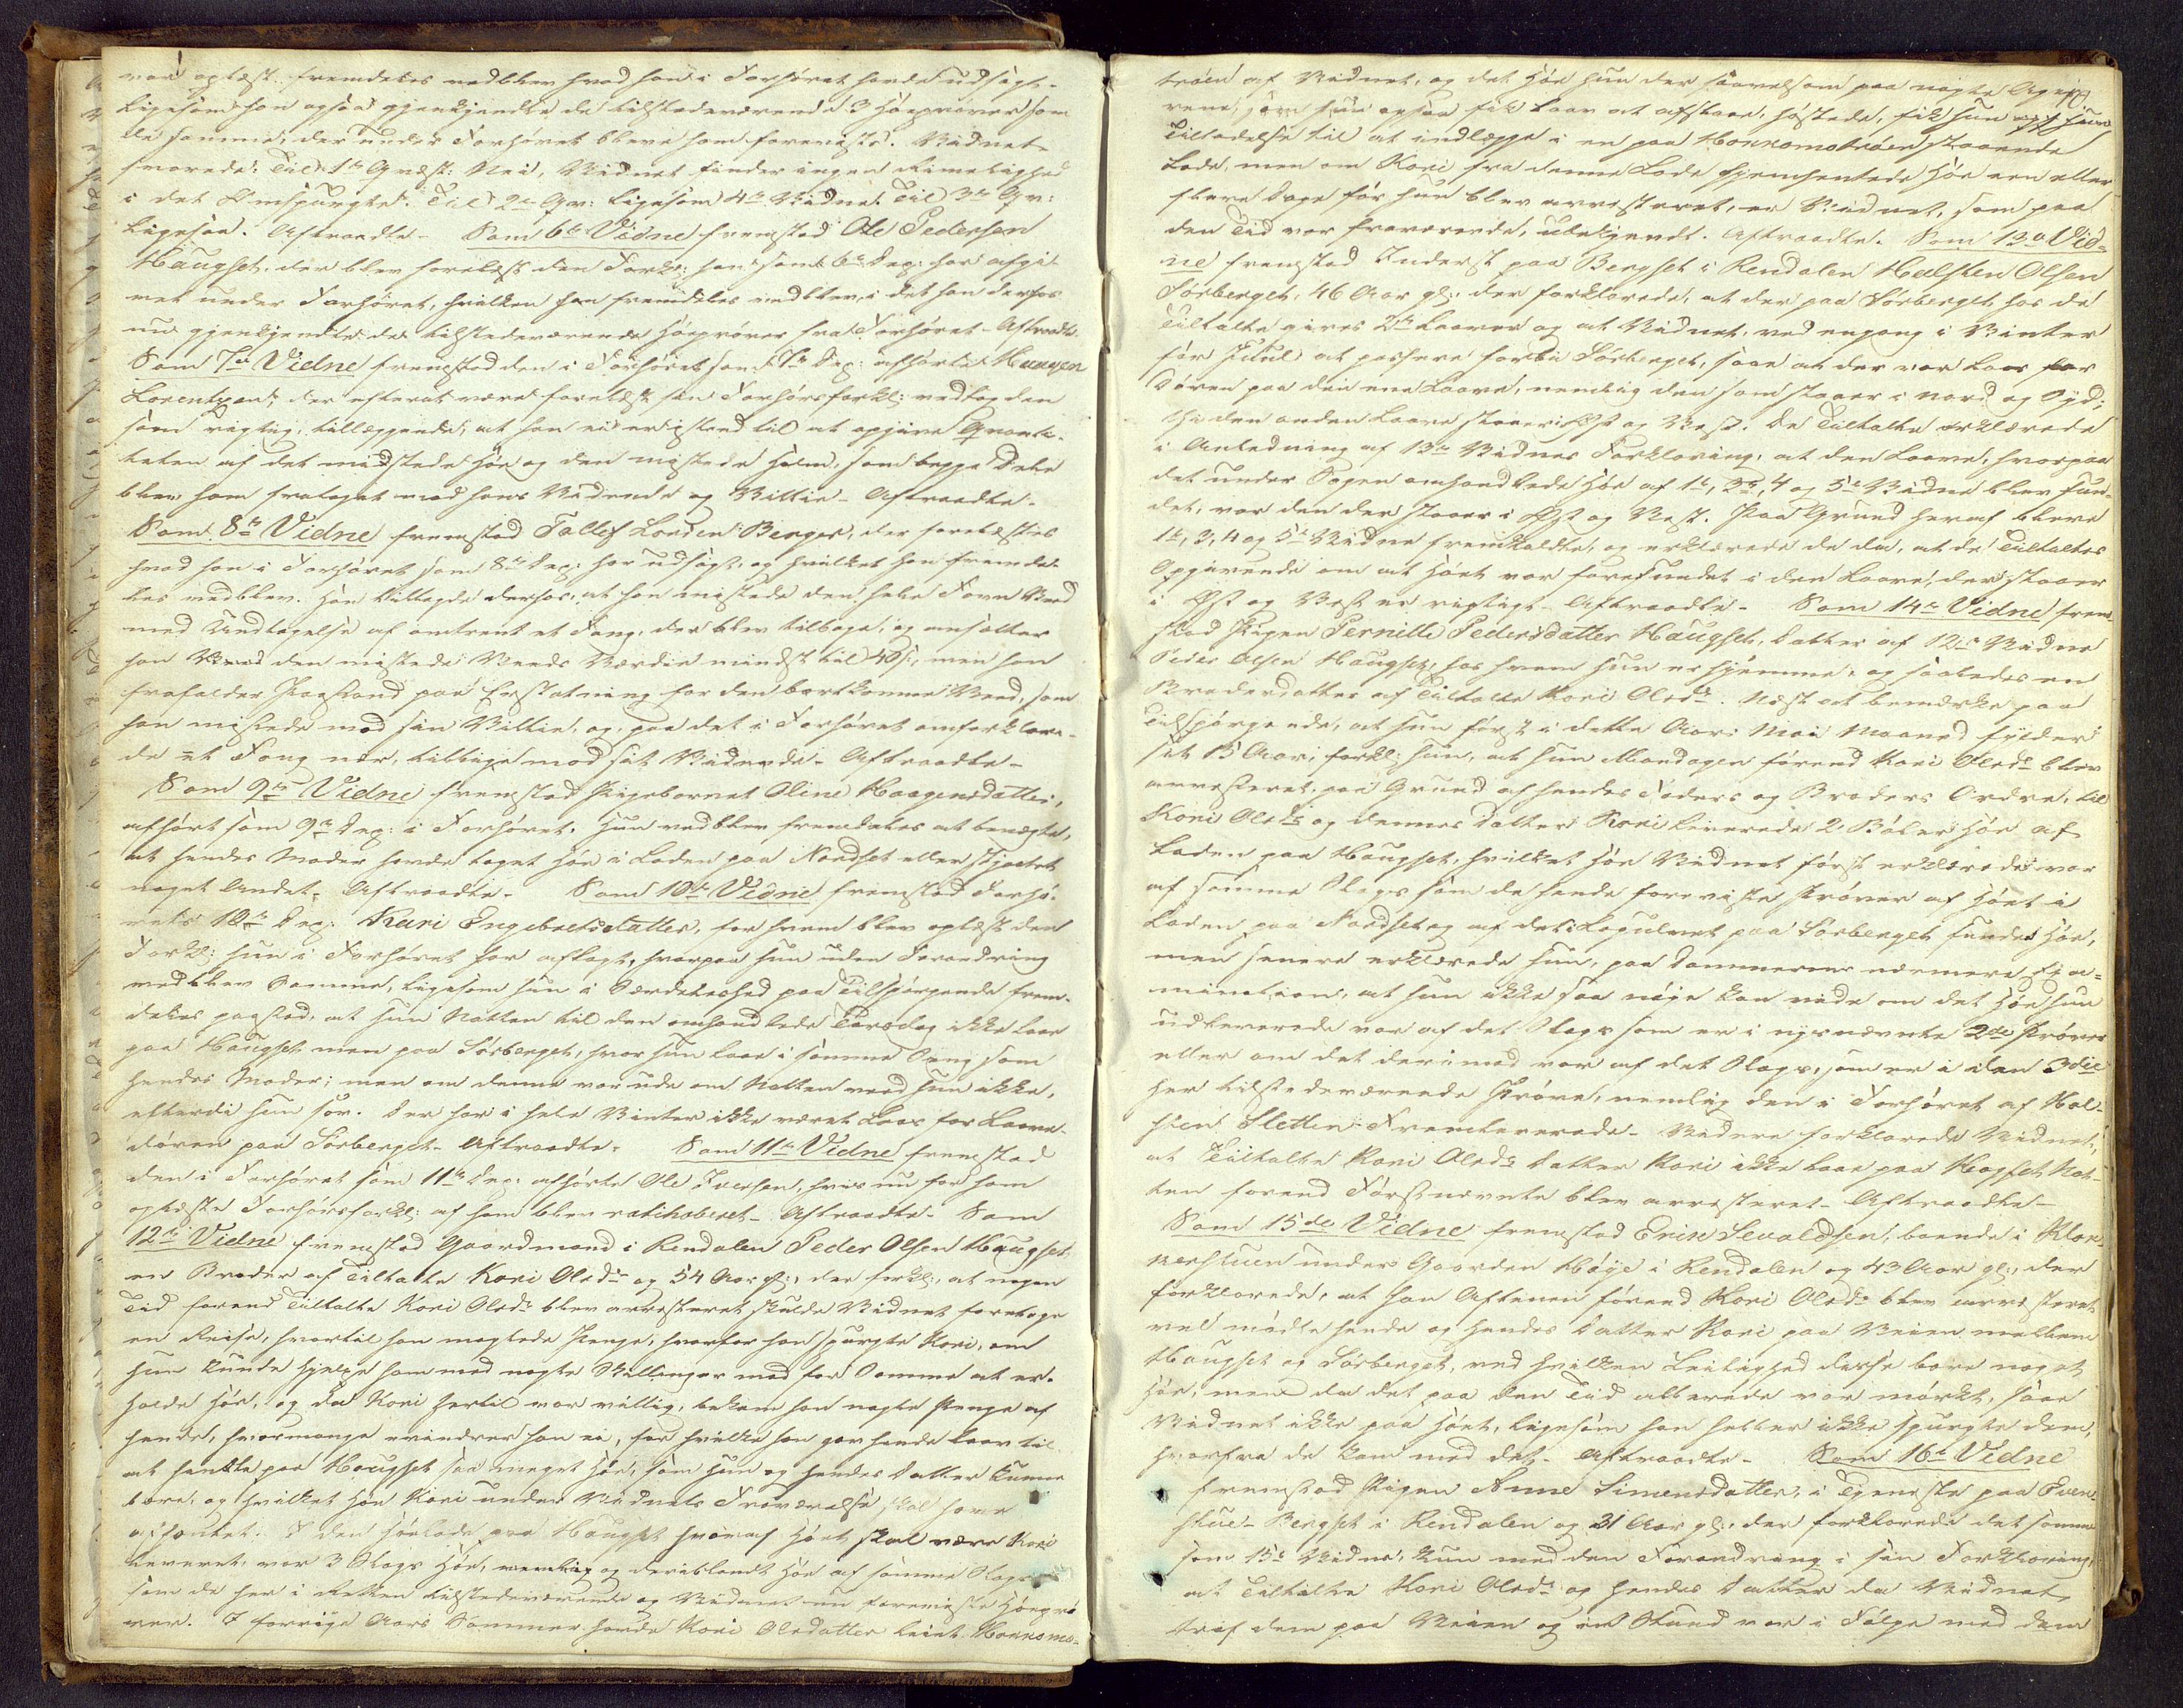 var oplæst fremdeles vedblev hvad han i Forhöret havde udsagt.
Ligesom han ogsaa gjenkjendte de tilstedeværende 3 Höeprøver som
de samme, der under Forhöret bleve ham foreviste. Vidnet
svarede: Til 1ste Qvæst: Nei, Vidnet finder ingen Rimelighed
i det Omspurgte. Til 2de Qv: ligesom 4de Vidne. Til 3die Qv:
ligesaa. Aftraadte. Som 6te Vidne fremstod Ole Pedersen
Haugset, der blev forelæst den Forkl: han som 6te Dep: har afgi-
vet under Forhöret, hvilken han fremdeles vedblev, i det han derhos
nu gjenkjendte de tilstedeværende Höeprøver fra Forhöret. Aftraadte.
Som 7de Vidne fremstod den i Forhöret som 7de Dep: afhörte
Lorentzen, der efterat være forelæst sin Forhörsforkl: vedtog den
som rigtig, tillæggende, at han ei er istand til at opgive Qvanti-
teten af det mistede Höe og den mistede Halm, som begge Dele
blev ham frataget mod hans Vidende og Villie. Aftraadte.
Som 8de Vidne fremstod Tollef Berger, der forelæstes
hvad han i Forhöret som 8de Dep: har udsagt, og hvilket han fremde-
les vedblev. Han tillagde derhos, at han mistede den hele Favn Veed
med Undtagelse af omtrent et Fang, der blev tilbage, og ansætter
han den mistede Veeds Værdie mindst til 40 s, men han
frafalder Paastand paa Erstatning for den bortkomne Veed, som
han mistede mod sin Villie, og, paa det i Forhöret omforklare-
de et Fang nær, tillige mod sit Vidende. Aftraadte.
Som 9de Vidne fremstod Pigebarnet Oline Haagensdatter,
afhört som 9de Dep: i Forhöret. Hun vedblev fremdeles at benægte,
at hendes Moder havde taget Höe i Laden paa Nordset eller stjaalet
noget Andet. Aftraadte. Som 10de Vidne fremstod Forhö-
rets 10de Dep: Kari Engebretsdatter, for hvem blev oplæst den
Forkl: hun i Forhöret har aflagt, hvorpaa hun uden Forandring
vedblev Samme, ligesom hun i Særdeleshed paa Tilspörgende frem-
deles paastod, at hun Natten til den omhandlede Torsdag ikke laae
paa Haugset men paa Sörberget, hvor hun laae i samme Seng som
hendes Moder; men om denne var ude om Natten veed hun ikke,
efterdi hun sov. Der har i hele Vinter ikke været Laas for Laave-
dören paa Sörberget. Aftraadte. Som 11te Vidne fremstod
den i Forhöret som 11te Dep: afhörte Ole Iversen, hvis nu for ham
oplæste Forhörsforkl: af ham blev ratihaberet. Aftraadte. Som
12te Vidne fremstod Gaardmand i Rendalen Peder Olsen Haugset
en Broder af Tiltalte Kari Olsdr og 54 Aar gl:, der forkl:, at nogen
Tid forend Tiltalte Kari Olsdr blev arresteret skulde Vidnet foretage
en Reise, hvortil han manglede Penge, hvorfor han spurgte Kari, om
hun kunde hjelpe ham med nogle Skillinger mod for Samme at er-
holde Höe, og da Kari hertil var villig, bekom han nogle Penge af
hende, hvormange erindrer han ei, for hvilke han gav hende Lov til
at hente paa Haugset saa meget Höe, som hun og hendes Datter kunne
bære, og hvilket Höe Kari under Vidnets Fraværelse skal have
afhentet. I den Hölade paa Haugset hvoraf Höet skal være Kari
leveret, var 3 Slags Höe, nemlig og deriblandt Höe af samme Slags
som de her i Retten tilstedeværende og Vidnet nu foreviste Höeprö-
ver. I forrige Aars Sommer havde Kari Olsdatter leiet
af Vidnet, og det Höe hun der saavelsom paa nogle
rene, som hun ogsaa fik Lov at afslaae, höstede, fik hun
Tilladelse til at indlægge i en paa staaende
Lade, men om Kari fra denne Lade hjemhentede Höe een eller
flere Dage för hun blev arresteret, er Vidnet, som paa
den Tid var fraværende, ubekjendt. Aftraadte. Som 13de Vid-
ne fremstod Inderst paa Bergset i Rendalen Halsten Olsen
Sörberget, 46 Aar gl:, der forklarede, at der paa Sörberget hos de
Tiltalte gives 2de Laaver og at Vidnet ved engang i Vinter
för Juul at passere forbi Sörberget, saae at der var Laas for
Dören paa den ene Laave, nemlig den som staaer i Nord og Syd;
thi den anden Laave staaer i Öst og Vest. De Tiltalte erklærede
i Anledning af 13de Vidnes Forklaring, at den Laave, hvorpaa
det under Sagen omhandlede Höe af 1ste, 3die, 4 og 5te Vidne blev fun-
det, var den der staaer i Öst og Vest. Paa Grund heraf bleve
1ste, 3, 4 og 5te Vidne fremkaldte, og erklærede de da, at de Tiltaltes
Opgivende om at Höet var forefundet i den Laave, der staaer
i Öst og Vest er rigtigt. Aftraadte. Som 14de Vidne frem-
stod Pigen Pernille Pedersdatter Haugset, Datter af 12te Vidne
Peder Olsen Haugset, hos hvem hun er hjemme, og saaledes en
Broderdatter af Tiltalte Kari Olsdr. Næst at bemærke paa
Tilspörgende, at hun först i dette Aars Mai Maaned fylder
sit 15 Aar, forkl: hun, at hun Mandagen förend Kari Olsdr blev
arresteret, paa Grund af hendes Faders og Broders Ordre, til
Kari Olsdr og dennes Datter Kari leverede 2 Börer Höe af
Laden paa Haugset, hvilket Höe Vidnet först erklærede var
af samme Slags som de hende foreviste Pröver af Höet i
Laden paa Nordset og af det paa Sörberget fundet Höe,
men senere erklærede hun, paa Dommerens nærmere Exa-
mination, at hun ikke saa nöie kan vide om det Höe hun
udleverede var af det Slags som er i nysnævnte 2de Pröver
eller om det derimod var af det Slags, som er i den 3die
her tilstedeværende Pröve, nemlig den i Forhöret af Hal-
sten Sletten Fremleverede. Videre forklarede Vidnet,
at Tiltalte Kari Olsdr Datter Kari ikke laae paa Haugset Nat-
ten forend Förstnævnte blev arresteret. Aftraadte.
Som 15de Vidne fremstod Erik Sevaldsen, boende i Klok-
kerstuen under Gaarden Höye i Rendalen og 43 Aar gl:, der
forklarede, at han Aftenen förend Kari Olsdr blev arresteret
vel mödte hende og hendes Datter Kari paa Veien mellem
Haugset og Sörberget, ved hvilken Leilighed disse bare noget
Höe, men da det paa den Tid allerede var mörkt, saae
Vidnet ikke paa Höet, ligesom han heller ikke spurgte dem,
hvorfra de kom med det. Aftraadte. Som 16de Vidne
fremstod Pigen Anne Simensdatter, i Tjeneste paa
Bergset i Rendalen og 31 Aar gl:, der forklarede det samme
som 15de Vidne, kun med den Forandring i sin Forklaring,
at Tiltalte Kari Olsdr og hendes Datter da Vidnet
traf dem paa Veien og en Stund var i Fölge med dem